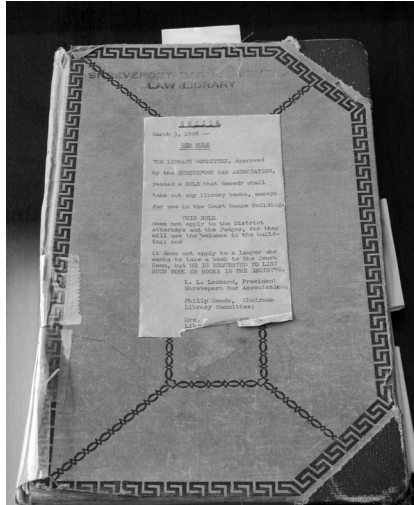 SHREVEPORT BAR
LAW LIBRARY
NOTICE
March 3, 1958 —
NEW RULE
THE LIBRARY COMMITTEE, approved
by the SHREVEPORT BAR ASSOCIATION,
passed a RULE that nobody shall
take out any library books, except
for use in the Court House Building.
THIS RULE
does not apply to the District
Attorneys and the Judges, for they
will use the volumes in the build-
ing; and
It does not apply to a lawyer who
wants to take a book to the Court
Room, but HE IS REQUESTED TO LIST
SUCH BOOK OR BOOKS IN THE REGISTER.
L. L. Lockard, President
Shreveport Bar Association;
Philip Goode, Chairman
Library Committee;
Mrs.